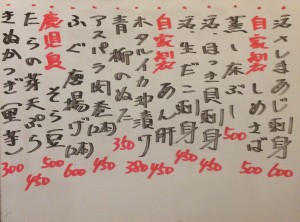 活きしまあじ刺身 600
自家製しめさば 500
蒸し床ぶし 500
活ほっき刺身 450
活生だこ刺身 450
自家製あん肝 450
ホタルイカ沖漬け 380
青柳のぬた 350
アスパラ肉巻(2本) 450
ふぐ唐揚げ(2本) 600
鹿児島そら豆 500
たらの芽天ぷら 450
きぬかつぎ(里芋) 300